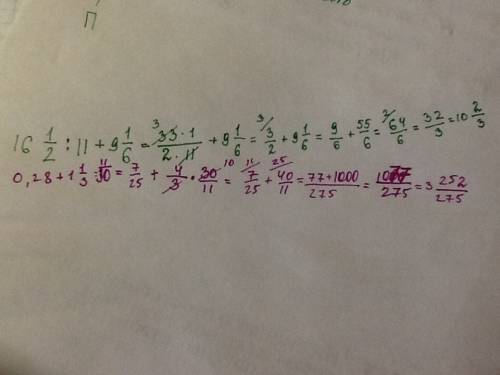 П
16 1/2 : 11 + 9 1/6 = 33·1/2·11 + 9 1/6 = 3/2 + 9 1/6 = 9/6 + 55/6 = 64/6 = 32/3 = 10 2/3
0,28 + 1 1/3 : 11/30 = 7/25 + 4/3 · 30/11 = 7/25 + 40/11 = 77+1000/275 = 1077/275 = 3 252/275